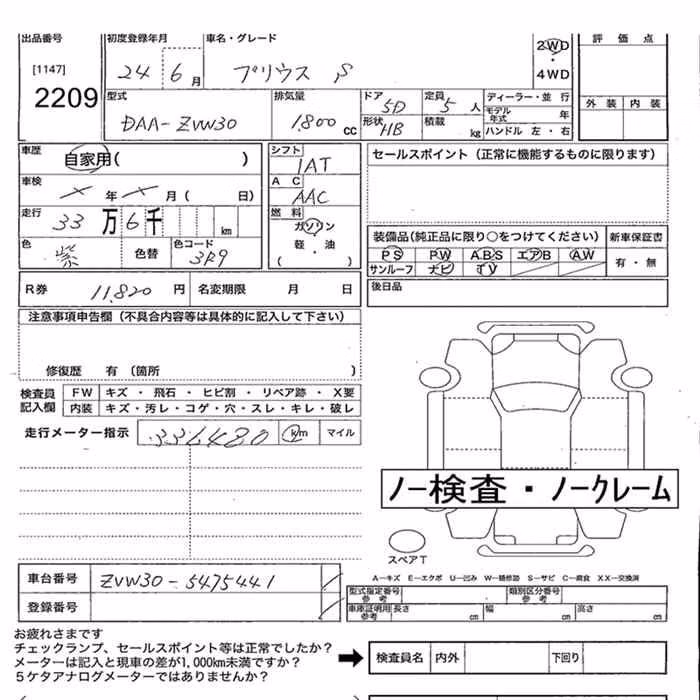 出品番号 初度登録年月 車名・グレード 2WD 評価点
[1147] 24 6月 プリウス S 4WD
2209 型式 排気量 ドア 5D 定員 5人 ディーラー・並行 外装 内装
DAA-ZVW30 1,800 cc 形状 HB 積載 kg モデル年式 年
ハンドル 左・右
車歴 自家用( ) シフト セールスポイント（正常に機能するものに限ります）
1AT
車検 × 年 × 月( 日) AC
AAC
走行 33万6千 km 燃料
ガソリン 装備品(純正品に限り○をつけてください) 新車保証書
色 紫 色替 色コード 3R9 軽・油 PS PW ABS エアB AW 有・無
( ) サンルーフ ナビ TV
R券 11,820円 名変期限 月 日 後日品
注意事項申告欄（不具合内容等は具体的に記入して下さい）
修復歴 有（箇所
検査員記入欄 FW キズ・飛石・ヒビ割・リペア跡・X要
内装 キズ・汚レ・コゲ・穴・スレ・キレ・破レ
走行メーター指示 336480 km マイル
ノー検査・ノークレーム
スペアT
A－キズ E－エクボ U－凹み W－補修跡 S－サビ C－腐食 XX－交換済
車台番号 ZVW30-5475441 型式指定番号 参考 類別区分番号 参考
登録番号 車庫証明用 参考 長さ cm 幅 cm 高さ cm
お疲れさまです
チェックランプ、セールスポイント等は正常でしたか？
メーターは記入と現車の差が1,000km未満ですか？ 検査員名 内外 下回り
５ケタアナログメーターではありませんか？